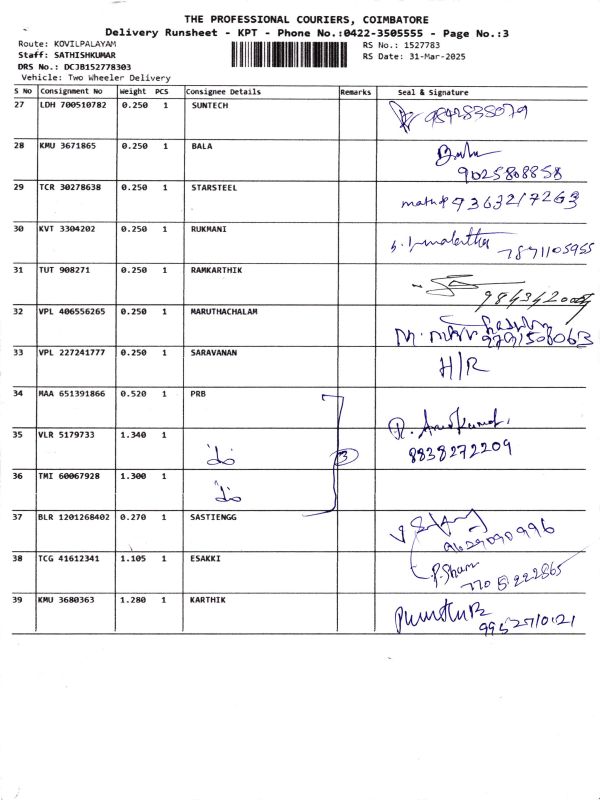 THE PROFESSIONAL COURIERS, COIMBATORE
Delivery Runsheet - KPT - Phone No.:0422-3505555 - Page No.:3
Route: KOVILPALAYAM RS No.: 1527783
Staff: SATHISHKUMAR RS Date: 31-Mar-2025
DRS No.: DCJB152778303
Vehicle: Two Wheeler Delivery
S No Consignment No Weight PCS Consignee Details Remarks Seal & Signature
27 LDH 700510782 0.250 1 SUNTECH 9842838079
28 KMU 3671865 0.250 1 BALA Bala
9025808858
29 TCR 30278638 0.250 1 STARSTEEL 9363217263
30 KVT 3304202 0.250 1 RUKMANI
7871105955
31 TUT 908271 0.250 1 RAMKARTHIK
32 VPL 406556265 0.250 1 MARUTHACHALAM
9791508063
33 VPL 227241777 0.250 1 SARAVANAN H/R
34 MAA 651391866 0.520 1 PRB
35 VLR 5179733 1.340 1 3 8838272209
36 TMI 60067928 1.300 1
37 BLR 1201268402 0.270 1 SASTIENGG
9629090996
38 TCG 41612341 1.105 1 ESAKKI P. Sham
39 KMU 3680363 1.280 1 KARTHIK